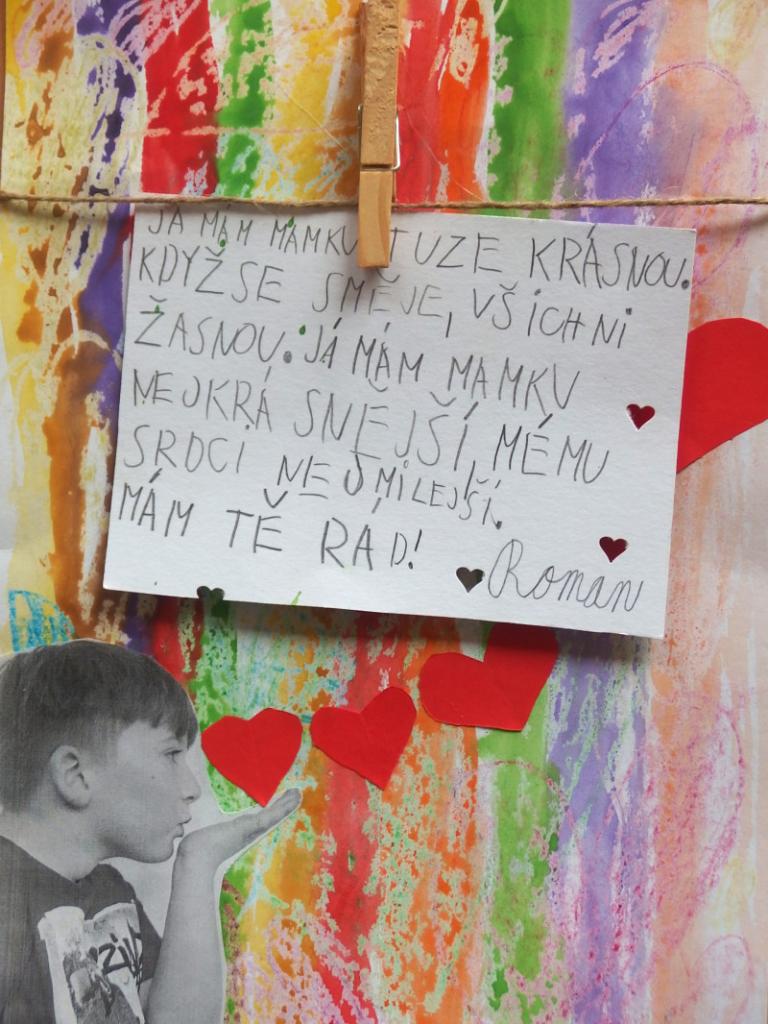 JÁ MÁM MAMKU TUZE KRÁSNOU.
KDYŽ SE SMĚJE, VŠICHNI
ŽASNOU. JÁ MÁM MAMKU
NEJKRÁSNĚJŠÍ, MÉMU
SRDCI NEJMILEJŠÍ.
MÁM TĚ RÁD!
Roman